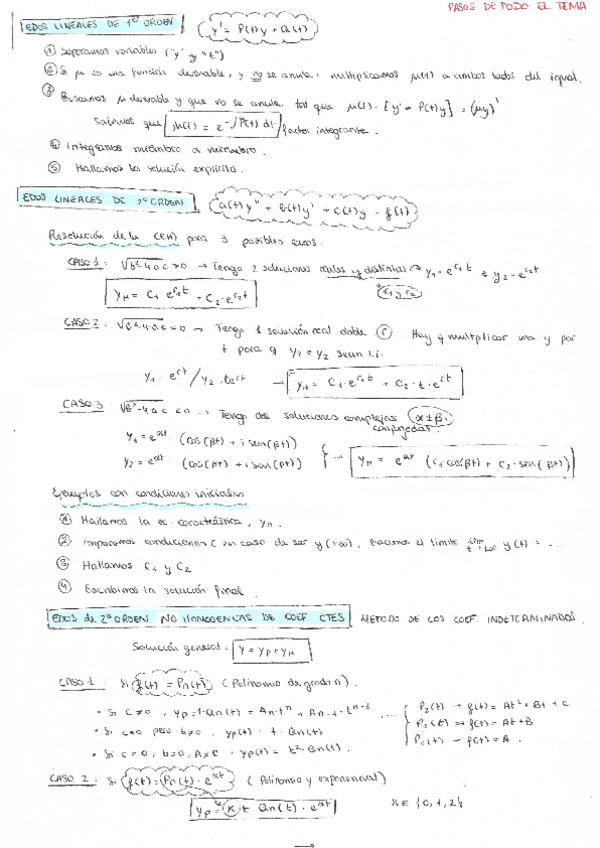 PASOS DE TODO EL TEMA
EDOS LINEALES DE 1er ORDEN y' = P(t)y + Q(t)
① Separamos variables ("y" y "t")
② Si μ es una función derivable, y no se anula, multiplicamos μ(t) a ambos lados del igual.
③ Buscamos μ derivable y que no se anule tal que μ(t)·[y' - P(t)y] = (μy)'
Sabemos que μ(t) = e^-∫P(t)dt factor integrante.
④ Integramos miembro a miembro.
⑤ Hallamos la solución explícita.
EDOS LINEALES DE 2º ORDEN a(t)y'' + b(t)y' + c(t)y = f(t)
Resolución de la (EH) para 3 posibles casos:
CASO 1: √b²-4ac > 0 → Tengo 2 soluciones reales y distintas → y₁ = e^r₁t e y₂ = e^r₂t
y_H = C₁·e^r₁t + C₂·e^r₂t
CASO 2: √b²-4ac = 0 → Tengo 1 solución real doble (r) Hay q multiplicar una y por
t para q y₁ e y₂ sean l.i.
y₁ = e^rt / y₂ = t·e^rt → y_H = C₁·e^rt + C₂·t·e^rt
CASO 3: √b²-4ac < 0 → Tengo dos soluciones complejas (α±βi)
conjugadas.
y₁ = e^αt · (cos(βt) + i sen(βt))
y₂ = e^αt · (cos(βt) + i sen(βt)) } → y_H = e^αt (C₁·cos(βt) + C₂·sen(βt))
Ejemplos con condiciones iniciales
① Hallamos la ec. característica, y_H.
② Imponemos condiciones (en caso de ser y(+∞), hacemos el límite lim t→+∞ y(t) = ...
③ Hallamos C₁ y C₂
④ Escribimos la solución final.
EDOS de 2º ORDEN NO HOMOGÉNEAS DE COEF CTES MÉTODO DE LOS COEF. INDETERMINADOS.
Solución general: y = y_P + y_H
CASO 1: Si f(t) = Pn(t) (Polinomio de grado n).
• Si c≠0, y_P = 1·Qn(t) = An·t^n + An-1·t^n-1 ... P₂(t) → f(t) = At² + Bt + C
• Si c=0 pero b≠0, y_P(t) = t·Qn(t) P₁(t) → f(t) = At + B
• Si c=0, b=0, y_P(t) = t²·Qn(t). P₀(t) → f(t) = A.
CASO 2: Si f(t) = Pn(t)·e^αt (Polinomio y exponencial)
y_P = t^K Qn(t)·e^αt K ∈ {0,1,2}